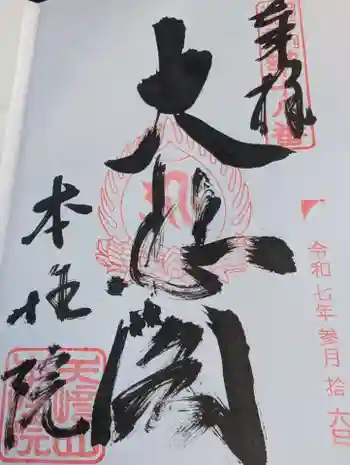 奉拝
大悲閣
本住院
令和七年参月拾六日